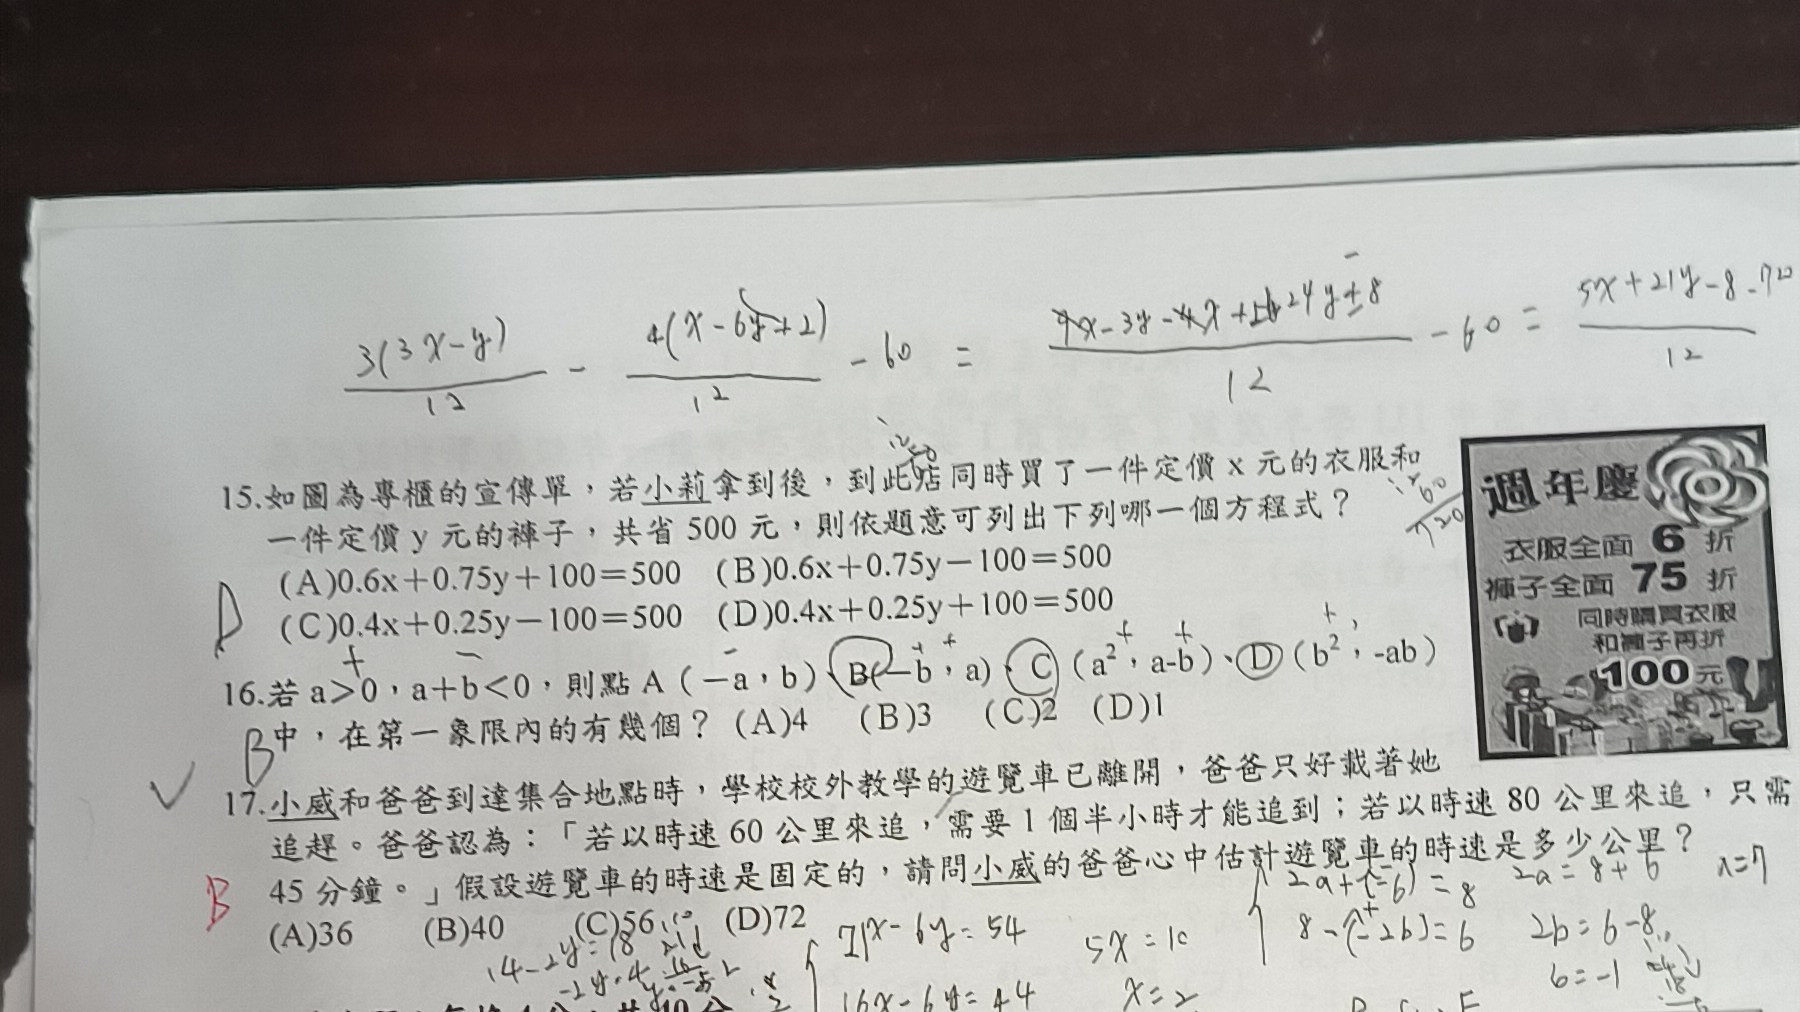 3(3x-y)/12 - 4(x-6y+2)/12 - 60 = 9x-3y-4x+24y-8/12 - 60 = 5x+21y-8-720/12
15.如圖為專櫃的宣傳單，若小莉拿到後，到此店同時買了一件定價 x 元的衣服和
一件定價 y 元的褲子，共省 500 元，則依題意可列出下列哪一個方程式？
(A)0.6x＋0.75y＋100＝500 (B)0.6x＋0.75y－100＝500
D (C)0.4x＋0.25y－100＝500 (D)0.4x＋0.25y＋100＝500
12
60
720
週年慶
衣服全面 6 折
褲子全面 75 折
同時購買衣服
和褲子再折
100元
16.若 a＞0，a＋b＜0，則點 A（－a，b）、B(－b，a)、C（a²，a-b）、D（b²，-ab）
B 中，在第一象限內的有幾個？ (A)4 (B)3 (C)2 (D)1
17.小威和爸爸到達集合地點時，學校校外教學的遊覽車已離開，爸爸只好載著她
追趕。爸爸認為：「若以時速 60 公里來追，需要 1 個半小時才能追到；若以時速 80 公里來追，只需
45 分鐘。」假設遊覽車的時速是固定的，請問小威的爸爸心中估計遊覽車的時速是多少公里？
B (A)36 (B)40 (C)56 (D)72
14-2y=18
-2y=4
21x-6y=54
16x-6y=44
5x=10
x=2
2a+(-6)=8
8-(-2b)=6
2a=8+6
a=7
2b=6-8
b=-1